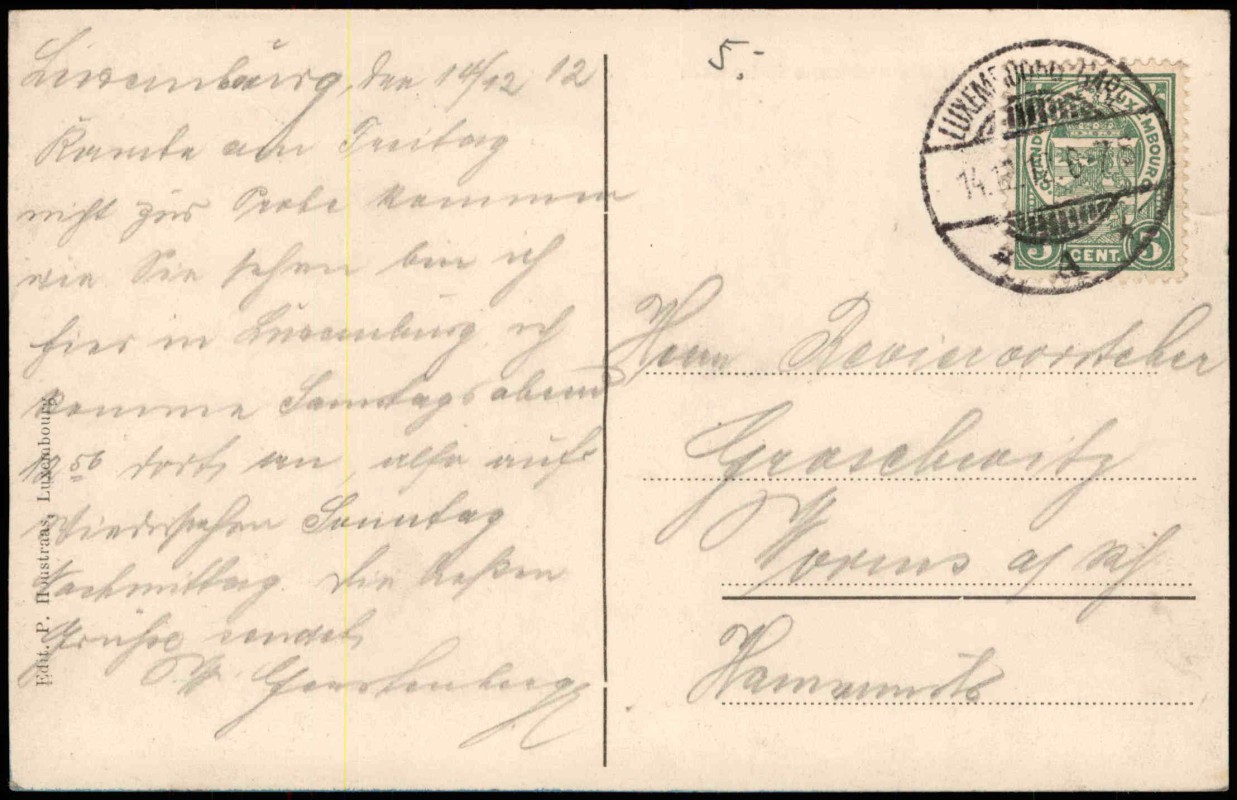 Luxemburg, den 14/12 12
Konnte am Freitag
nicht zur Probe kommen
wie Sie sehen bin ich
hier in Luxemburg ich
komme Samstagsabend
12 56 dort an, also auf
Wiedersehen Sonntag
Nachmittag. Die besten
Grüße sendet
W. Gerstenberg
Edit. P. Houstraas, Luxembourg
5.-
LUXEMBOURG-GARE
14.12.12 6-7 S
GRAND LUXEMBOURG
5 CENT. 5
Herrn Reviervorsteher
Groschwitz
Worms a/Rh